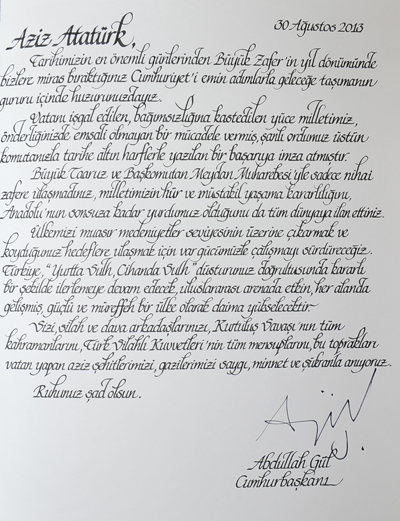 30 Ağustos 2013
Aziz Atatürk,
Tarihimizin en önemli günlerinden Büyük Zafer'in yıl dönümünde
bizlere miras bıraktığınız Cumhuriyet'i emin adımlarla geleceğe taşımanın
gururu içinde huzurunuzdayız.
Vatanı işgal edilen, bağımsızlığına kastedilen yüce milletimiz,
önderliğinizde emsali olmayan bir mücadele vermiş, şanlı ordumuz üstün
komutanızla tarihe altın harflerle yazılan bir başarıya imza atmıştır.
Büyük Taaruz ve Başkomutan Meydan Muharebesi'yle sadece nihai
zafere ulaşmadınız, milletimizin hür ve müstakil yaşama kararlılığını,
Anadolu'nun sonsuza kadar yurdumuz olduğunu da tüm dünyaya ilan ettiniz.
Ülkemizi muasır medeniyetler seviyesinin üzerine çıkarmak ve
koyduğunuz hedeflere ulaşmak için var gücümüzle çalışmayı sürdüreceğiz.
Türkiye, "Yurtta Sulh, Cihanda Sulh" düsturunuz doğrultusunda kararlı
bir şekilde ilerlemeye devam edecek, uluslararası arenada etkin, her alanda
gelişmiş, güçlü ve müreffeh bir ülke olarak daima yükselecektir.
Sizi, silah ve dava arkadaşlarınızı, Kurtuluş Savaşı'nın tüm
kahramanlarını, Türk Silahlı Kuvvetleri'nin tüm mensuplarını, bu toprakları
vatan yapan aziz şehitlerimizi, gazilerimizi saygı, minnet ve şükranla anıyoruz.
Ruhunuz şad olsun.
Abdullah Gül
Cumhurbaşkanı